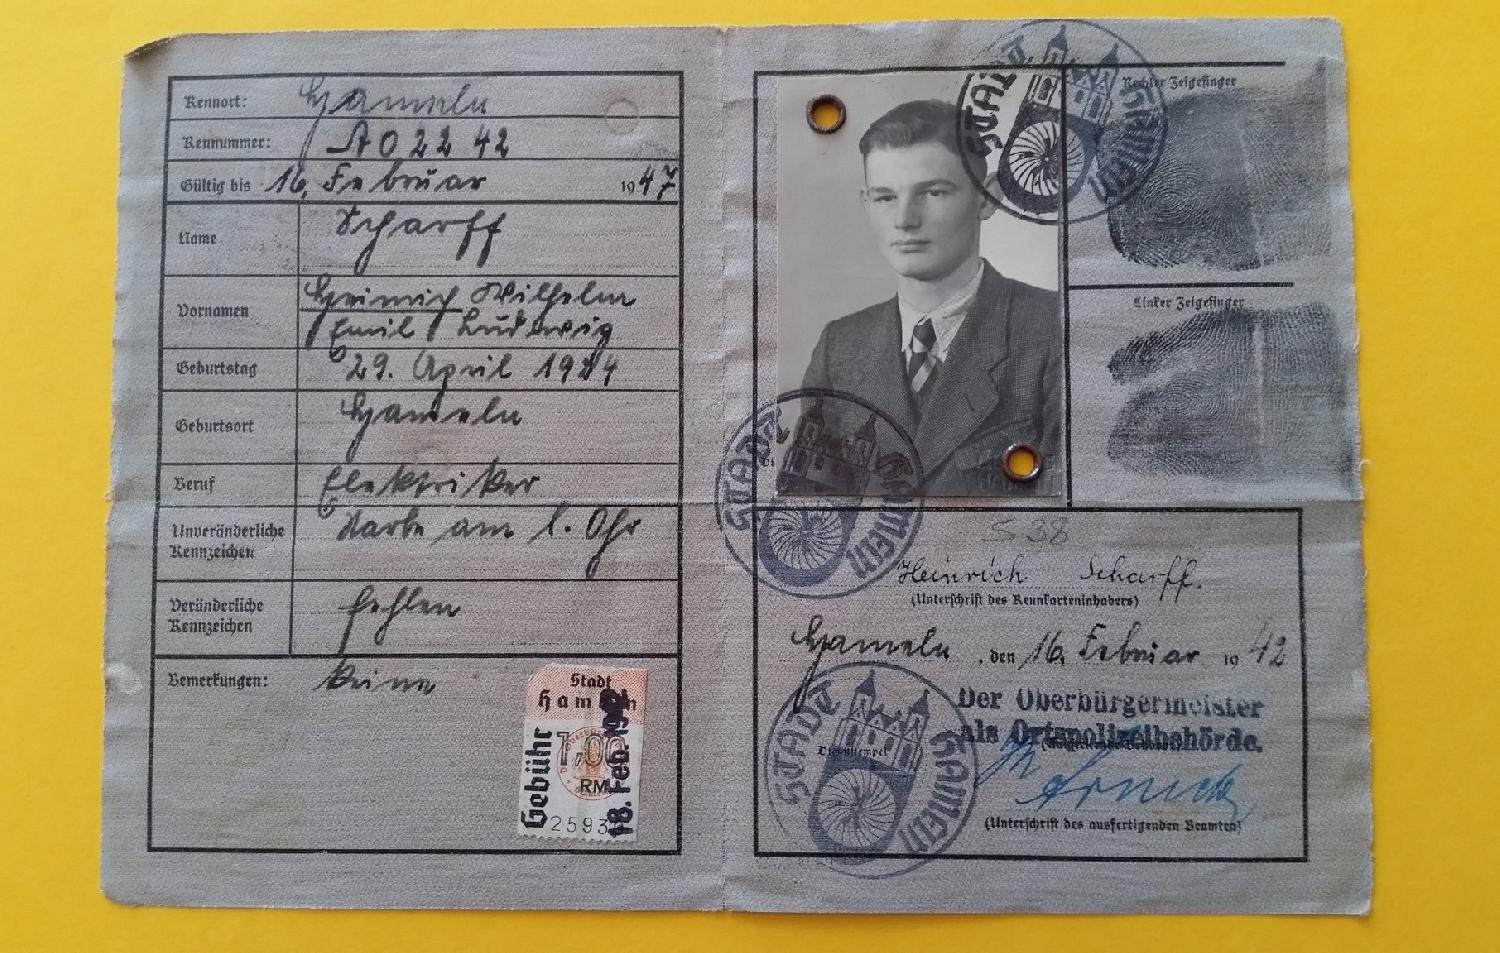 Kennort: Hameln
Kennummer: A 02242
Gültig bis 16. Februar 1947
Name Scharff
Vornamen Heinrich Wilhelm
Emil Ludwig
Geburtstag 29. April 1924
Geburtsort Hameln
Beruf Elektriker
Unveränderliche Kennzeichen Narbe am l. Ohr
Veränderliche Kennzeichen fehlen
Bemerkungen: Keine
Stadt
Hameln
Gebühr
1,00
RM
2593
18. Feb. 19
Rechter Zeigefinger
Linker Zeigefinger
STADT HAMELN
STADT HAMELN
S 38
Heinrich Scharff.
(Unterschrift des Kennkarteninhabers)
Hameln, den 16. Februar 1942
Der Oberbürgermeister
als Ortspolizeibehörde.
STADT HAMELN
Dienststempel
(Unterschrift des ausfertigenden Beamten)